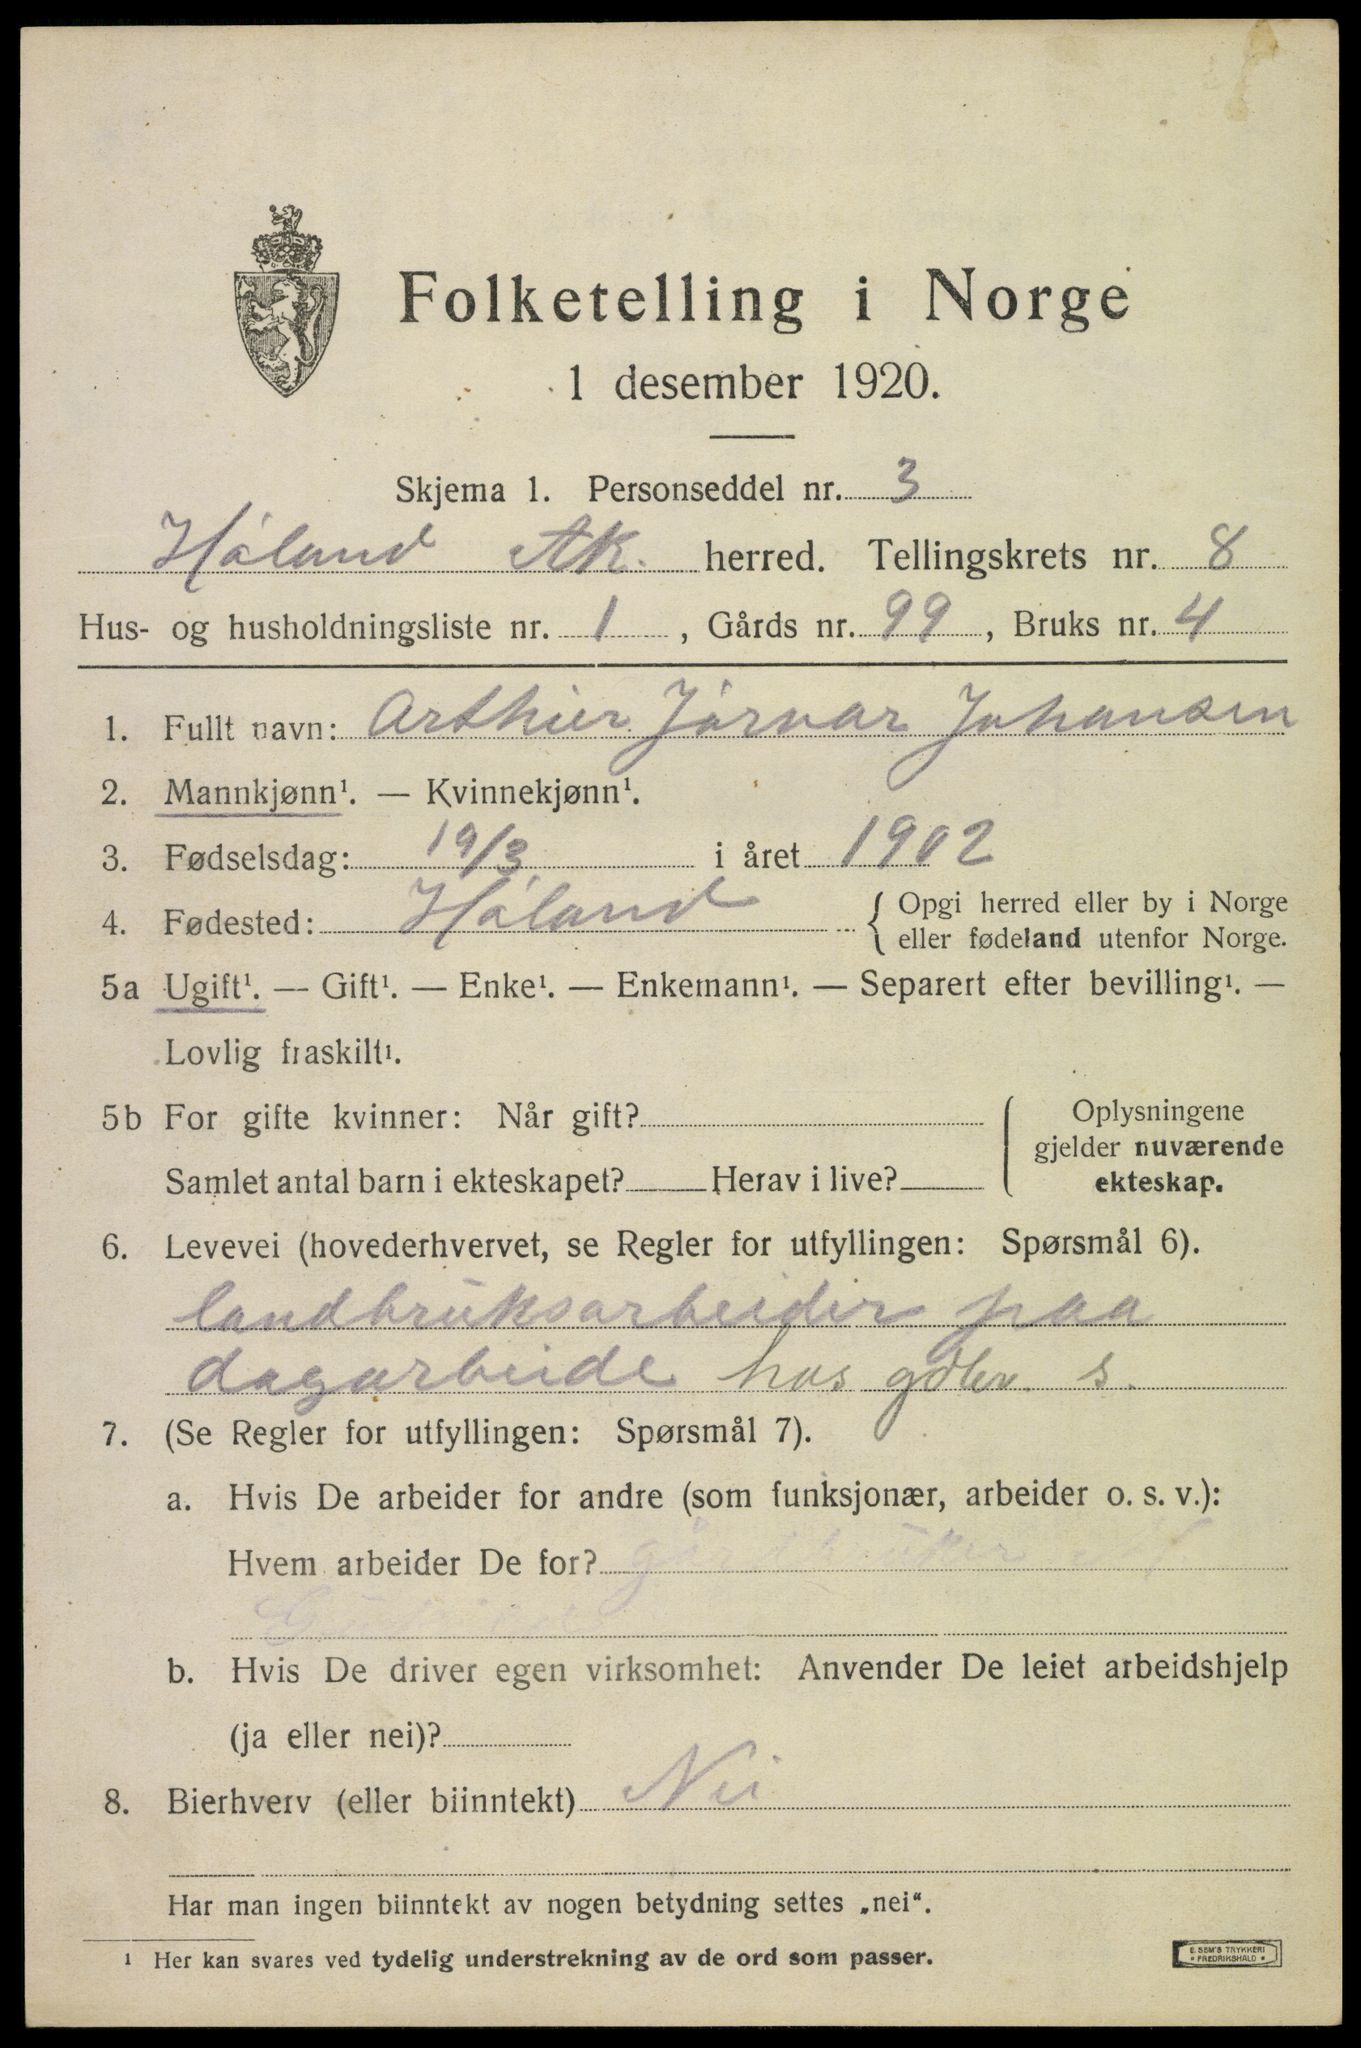 Folketelling i Norge
1 desember 1920.
Skjema 1. Personseddel nr. 3
Høland Ak. herred. Tellingskrets nr. 8
Hus- og husholdningsliste nr. 1, Gårds nr. 99, Bruks nr. 4
1. Fullt navn: Arthur Jörvar Johansen
2. Mannkjønn¹. — Kvinnekjønn¹.
3. Fødselsdag: 19/3 i året 1902
4. Fødested: Høland { Opgi herred eller by i Norge
eller fødeland utenfor Norge.
5a Ugift¹. — Gift¹. — Enke¹. — Enkemann¹. — Separert efter bevilling¹. —
Lovlig fraskilt¹.
5b For gifte kvinner: Når gift?
Samlet antal barn i ekteskapet? Herav i live?
Oplysningene
gjelder nuværende
ekteskap.
6. Levevei (hovederhvervet, se Regler for utfyllingen: Spørsmål 6).
landbruksarbeider paa
dagarbeide hos gdbr. s.
7. (Se Regler for utfyllingen: Spørsmål 7).
a. Hvis De arbeider for andre (som funksjonær, arbeider o. s. v.):
Hvem arbeider De for? gårdbruker
b. Hvis De driver egen virksomhet: Anvender De leiet arbeidshjelp
(ja eller nei)?
8. Bierhverv (eller biinntekt) Nei
Har man ingen biinntekt av nogen betydning settes „nei“.
¹ Her kan svares ved tydelig understrekning av de ord som passer.
E. SEM'S TRYKKERI
* FREDRIKSHALD *